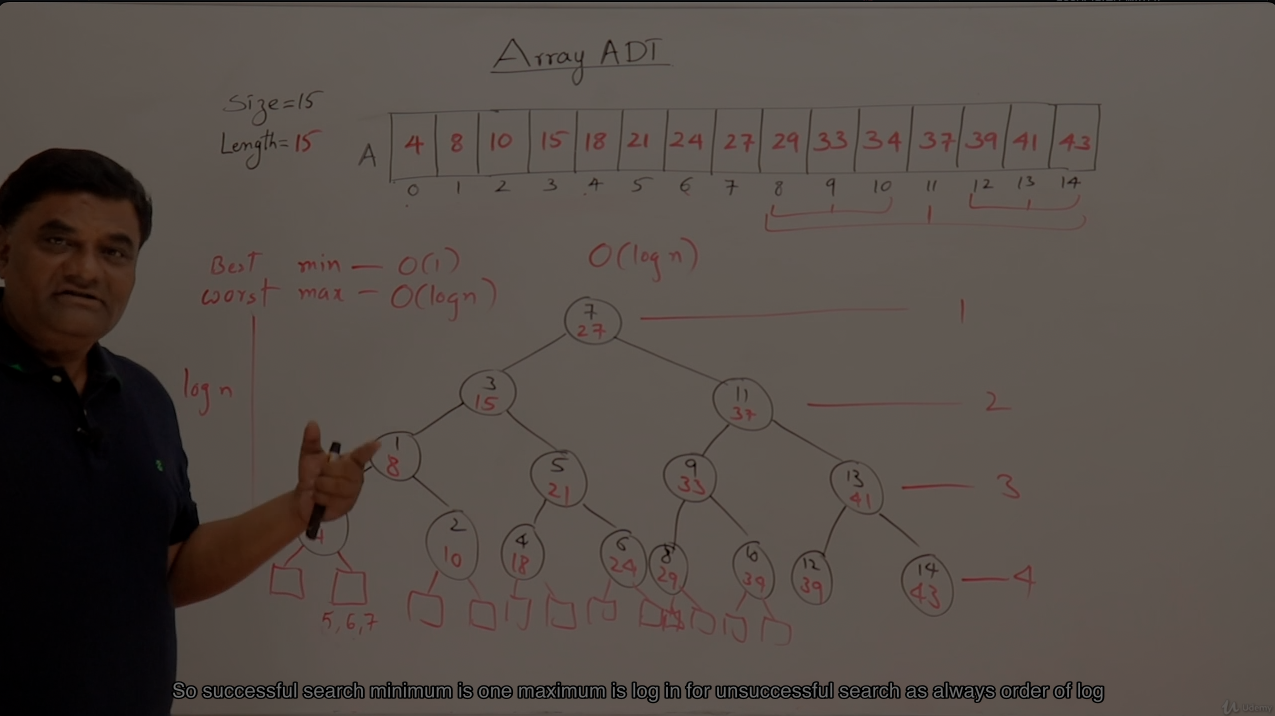 Array ADT
Size=15
Length=15
A 4 8 10 15 18 21 24 27 29 33 34 37 39 41 43
0 1 2 3 4 5 6 7 8 9 10 11 12 13 14
Best min — O(1)
worst max — O(logn)
O(logn)
7
27
1
logn
3
15
11
37
2
1
8
5
21
9
33
13
41
3
2
10
4
18
6
24
8
29
6
39
12
39
14
43
4
5,6,7
So successful search minimum is one maximum is log in for unsuccessful search as always order of log
Udemy